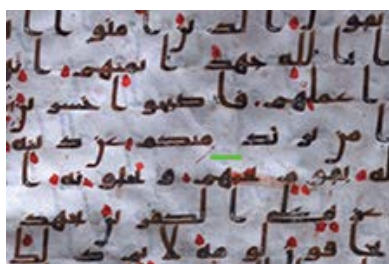 يقول ا لذ ين ا منو ا ا
ا با لله جهد ا يمنهم ا نهم
ا عملهم فا صبحو ا خسر ين
ا من ير تد منكم عن د ينه
لله بقو م يحبهم و يحبو نه ا
عز ة على ا لكفر ين يجهد
يخا فو ن لو مة لا ئم ذ لك